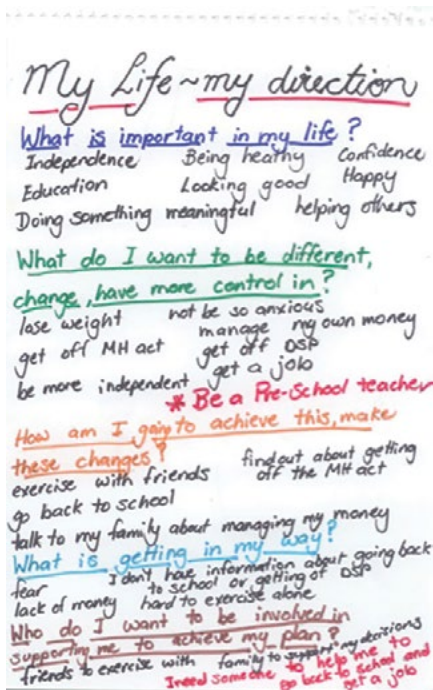 My Life ~ my direction
What is important in my life?
Independence Being heathy Confidence
Education Looking good Happy
Doing something meaningful helping others
What do I want to be different,
change, have more control in?
lose weight not be so anxious
manage my own money
get off MH act get off DSP
be more independent get a job
* Be a Pre-School teacher
How am I going to achieve this, make
these changes?
exercise with friends find out about getting
off the MH act
go back to school
talk to my family about managing my money
What is getting in my way?
fear I don't have information about going back
to school or getting of DSP
lack of money hard to exercise alone
Who do I want to be involved in
supporting me to achieve my plan?
friends to exercise with family to support my decisions
I need someone to help me to
go back to school and
get a job